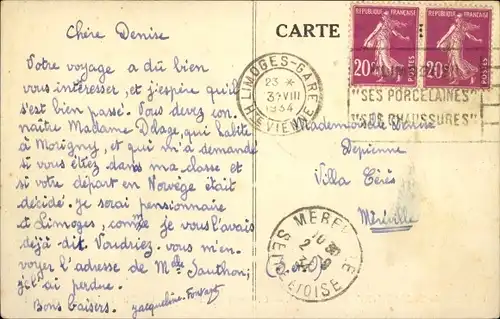 Chère Denise
Votre voyage a dû bien
vous intéresser, et j'espère qu'il
s'est bien passé. Vous devez con-
naître Madame Delage, qui habite
à Morigny, et qui m'a demandé
si vous étiez dans ma classe et
si votre départ en Novège était
décidé. Je serai pensionnaire
et Limoges, comme je vous l'avais
déjà dit. Voudriez vous m'en-
voyer l'adresse de Mlle Sauthon;
je l'ai perdue.
Bons baisers. Jacqueline
CARTE
REPUBLIQUE FRANÇAISE
20c POSTES
REPUBLIQUE FRANÇAISE
20c POSTES
LIMOGES-GARE
23 *
3 VIII
1934
HTE VIENNE
"SES PORCELAINES"
"SES CHAUSSURES"
Mademoiselle Denise
Depienne
Villa
Méréville
MEREVILLE
SEINE ET OISE